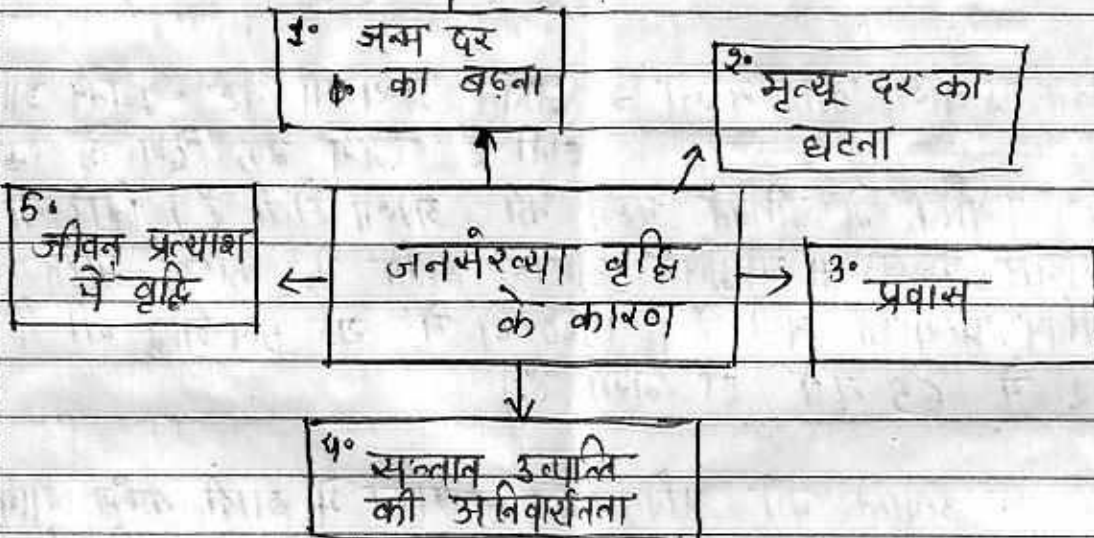 1. जन्म दर
का बढ़ना
2. मृत्यू दर का
घटना
5. जीवन प्रत्याश
मे वृद्धि
जनसंख्या वृद्धि
के कारण
3. प्रवास
4. सन्तान उत्पत्ति
की अनिवार्यतता